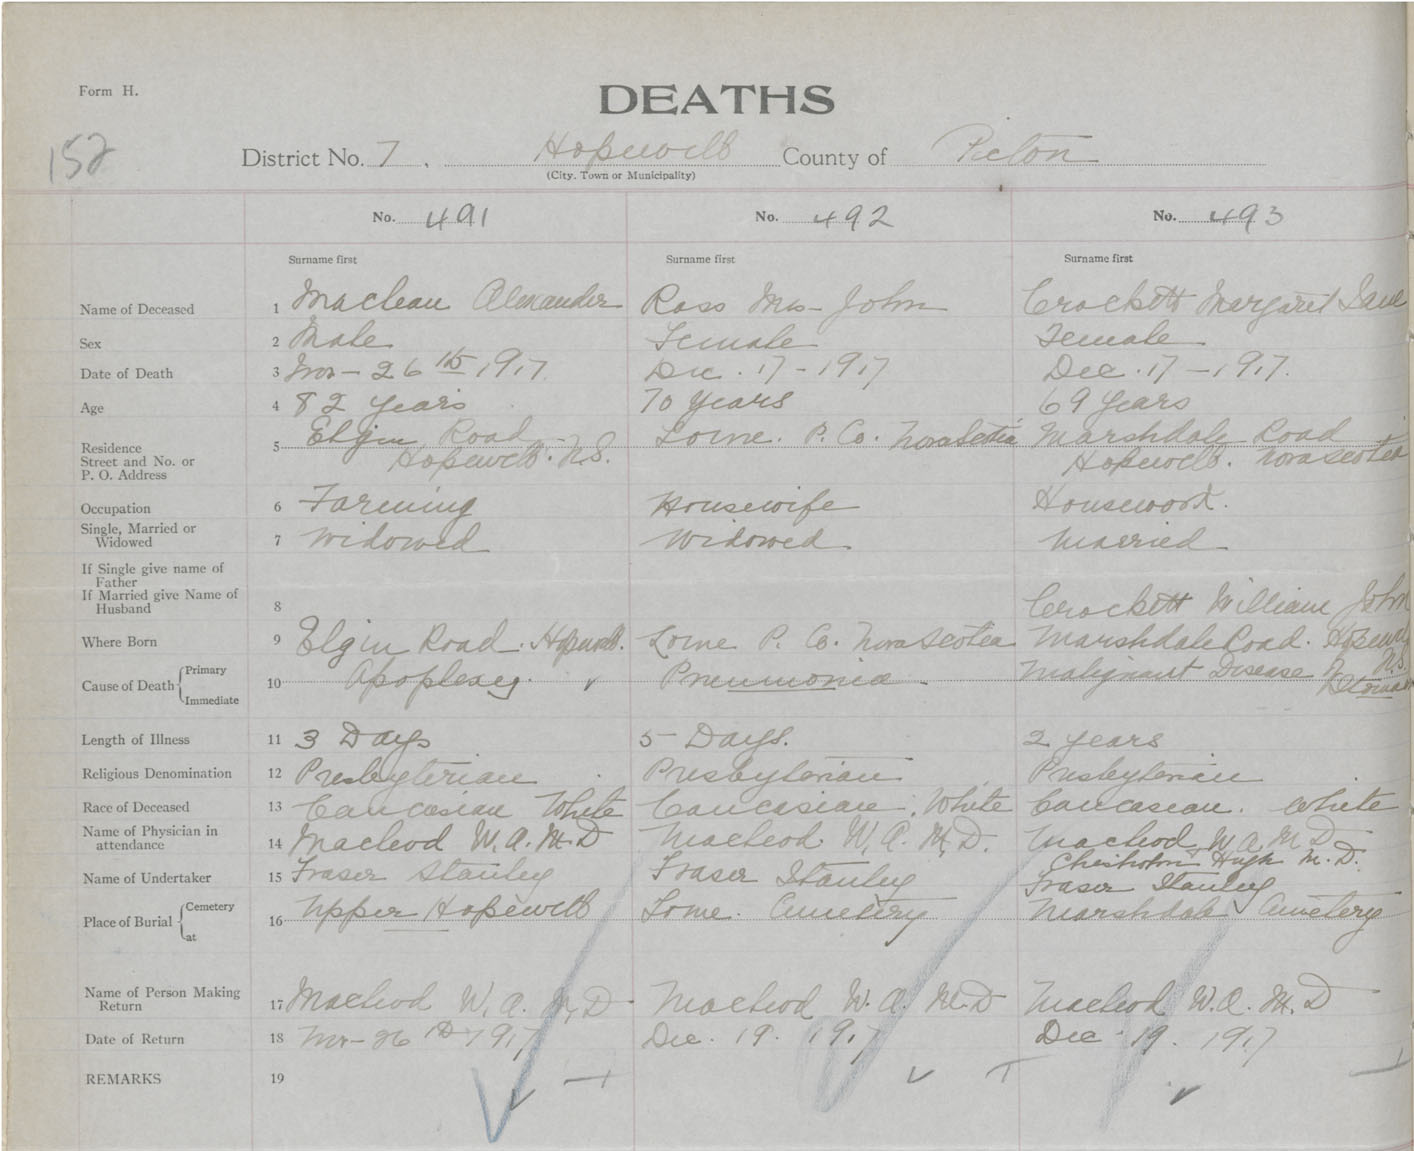 Form H.
DEATHS
152
District No. 7, Hopewell County of Pictou
(City, Town or Municipality)
No. 491 No. 492 No. 493
Surname first Surname first Surname first
Name of Deceased 1 Maclean Alexander Ross Mrs - John Crockett Margaret Jane
Sex 2 Male Female Female
Date of Death 3 Nov - 26 th 1917. Dec. 17 - 1917 Dec. 17 - 1917.
Age 4 82 years 70 years 69 years
Residence
Street and No. or
P. O. Address
5 Elgin Road Lorne. P. Co. Nova Scotia Marshdale Road
Hopewell. N.S. Hopewell. Nova Scotia
Occupation 6 Farming Housewife Housework.
Single, Married or
Widowed 7 Widowed Widowed Married
If Single give name of
Father
If Married give Name of
Husband 8 Crockett William John
Where Born 9 Elgin Road. Hopewell. Lorne P. Co. Nova Scotia Marshdale Road. Hopewell
N.S.
Cause of Death { Primary
Immediate
10 Apoplexy. Pneumonia Malignant Disease of
Stomach
Length of Illness 11 3 Days 5 Days. 2 years
Religious Denomination 12 Presbyterian Presbyterian Presbyterian
Race of Deceased 13 Caucasian White Caucasian. White Caucasean. White
Name of Physician in
attendance 14 Macleod W. A. M. D Macleod W. A. M. D. Macleod W A M D
Chisholm Hugh M. D.
Name of Undertaker 15 Fraser Stanley Fraser Stanley Fraser Stanley
Place of Burial { Cemetery
at
16 Upper Hopewell Lorne. Cemetery Marshdale Cemetery
Name of Person Making
Return 17 Macleod W. A. M. D Macleod W. A. M. D Macleod W. A. M. D
Date of Return 18 Nov - 26 th 1917 Dec. 19. 1917 Dec 19. 1917
REMARKS 19